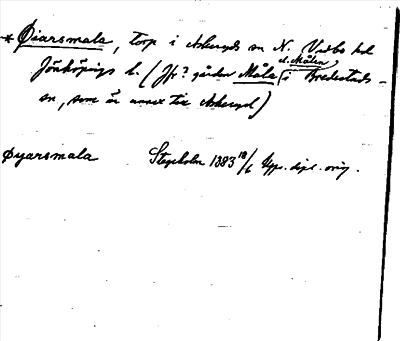 * Øiarsmala, torp i Askeryds sn N. Vedbo hd
Jönköpings l. (Jfr? gården Måla l. Målen i Bredestads-
sn, som är annex till Askeryd)
Øyarsmala Stegeholm 1383 18/6 Upps. dipl. orig.